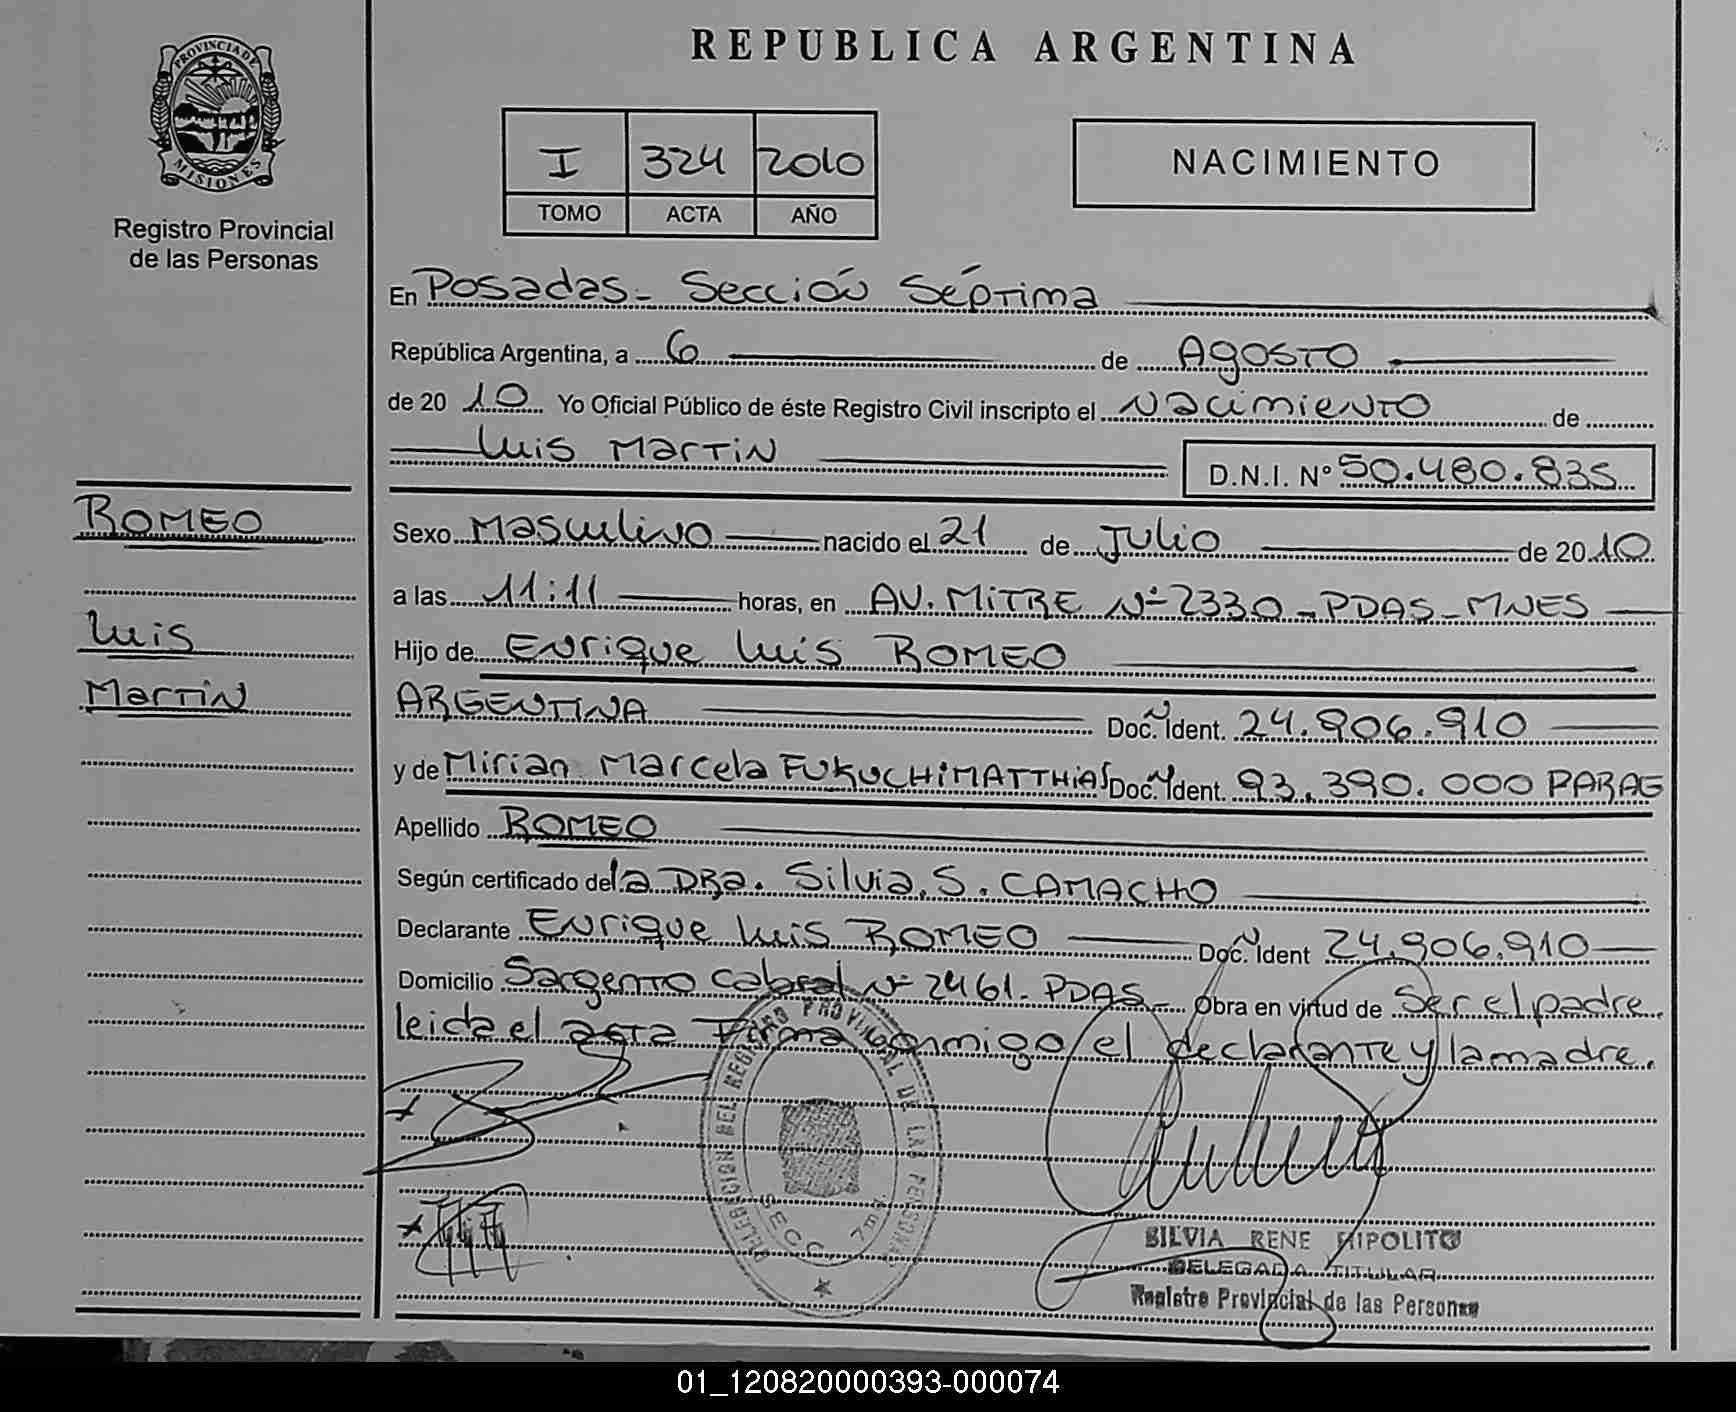 PROVINCIA DE
MISIONES
Registro Provincial
de las Personas
REPUBLICA ARGENTINA
I 324 2010
TOMO ACTA AÑO
NACIMIENTO
En Posadas - Sección Séptima
República Argentina, a 6 de Agosto
de 2010 Yo Oficial Público de éste Registro Civil inscripto el Nacimiento de
Luis Martin
D.N.I. Nº 50.480.835
ROMEO
Luis
Martin
Sexo Masculino nacido el 21 de Julio de 2010
a las 11:11 horas, en AV. MITRE Nº 2330 - PDAS - MNES
Hijo de Enrique Luis ROMEO
ARGENTINA Doc. Ident. 24.906.910
y de Mirian Marcela FUKUCHI MATTHIAS Doc. Ident. 93.390.000 PARAG
Apellido ROMEO
Según certificado de la DRa. Silvia. S. CAMACHO
Declarante Enrique Luis ROMEO Doc. Ident 24.906.910
Domicilio Sargento Cabral Nº 2461 - PDAS - Obra en virtud de Ser el padre.
leida el acta Firma conmigo el declarante y la madre.
DELEGACION DEL REGISTRO PROVINCIAL DE LAS PERSONAS
SECC. 7ma
SILVIA RENE HIPOLITO
DELEGADA TITULAR
Registro Provincial de las Personas
01_120820000393-000074